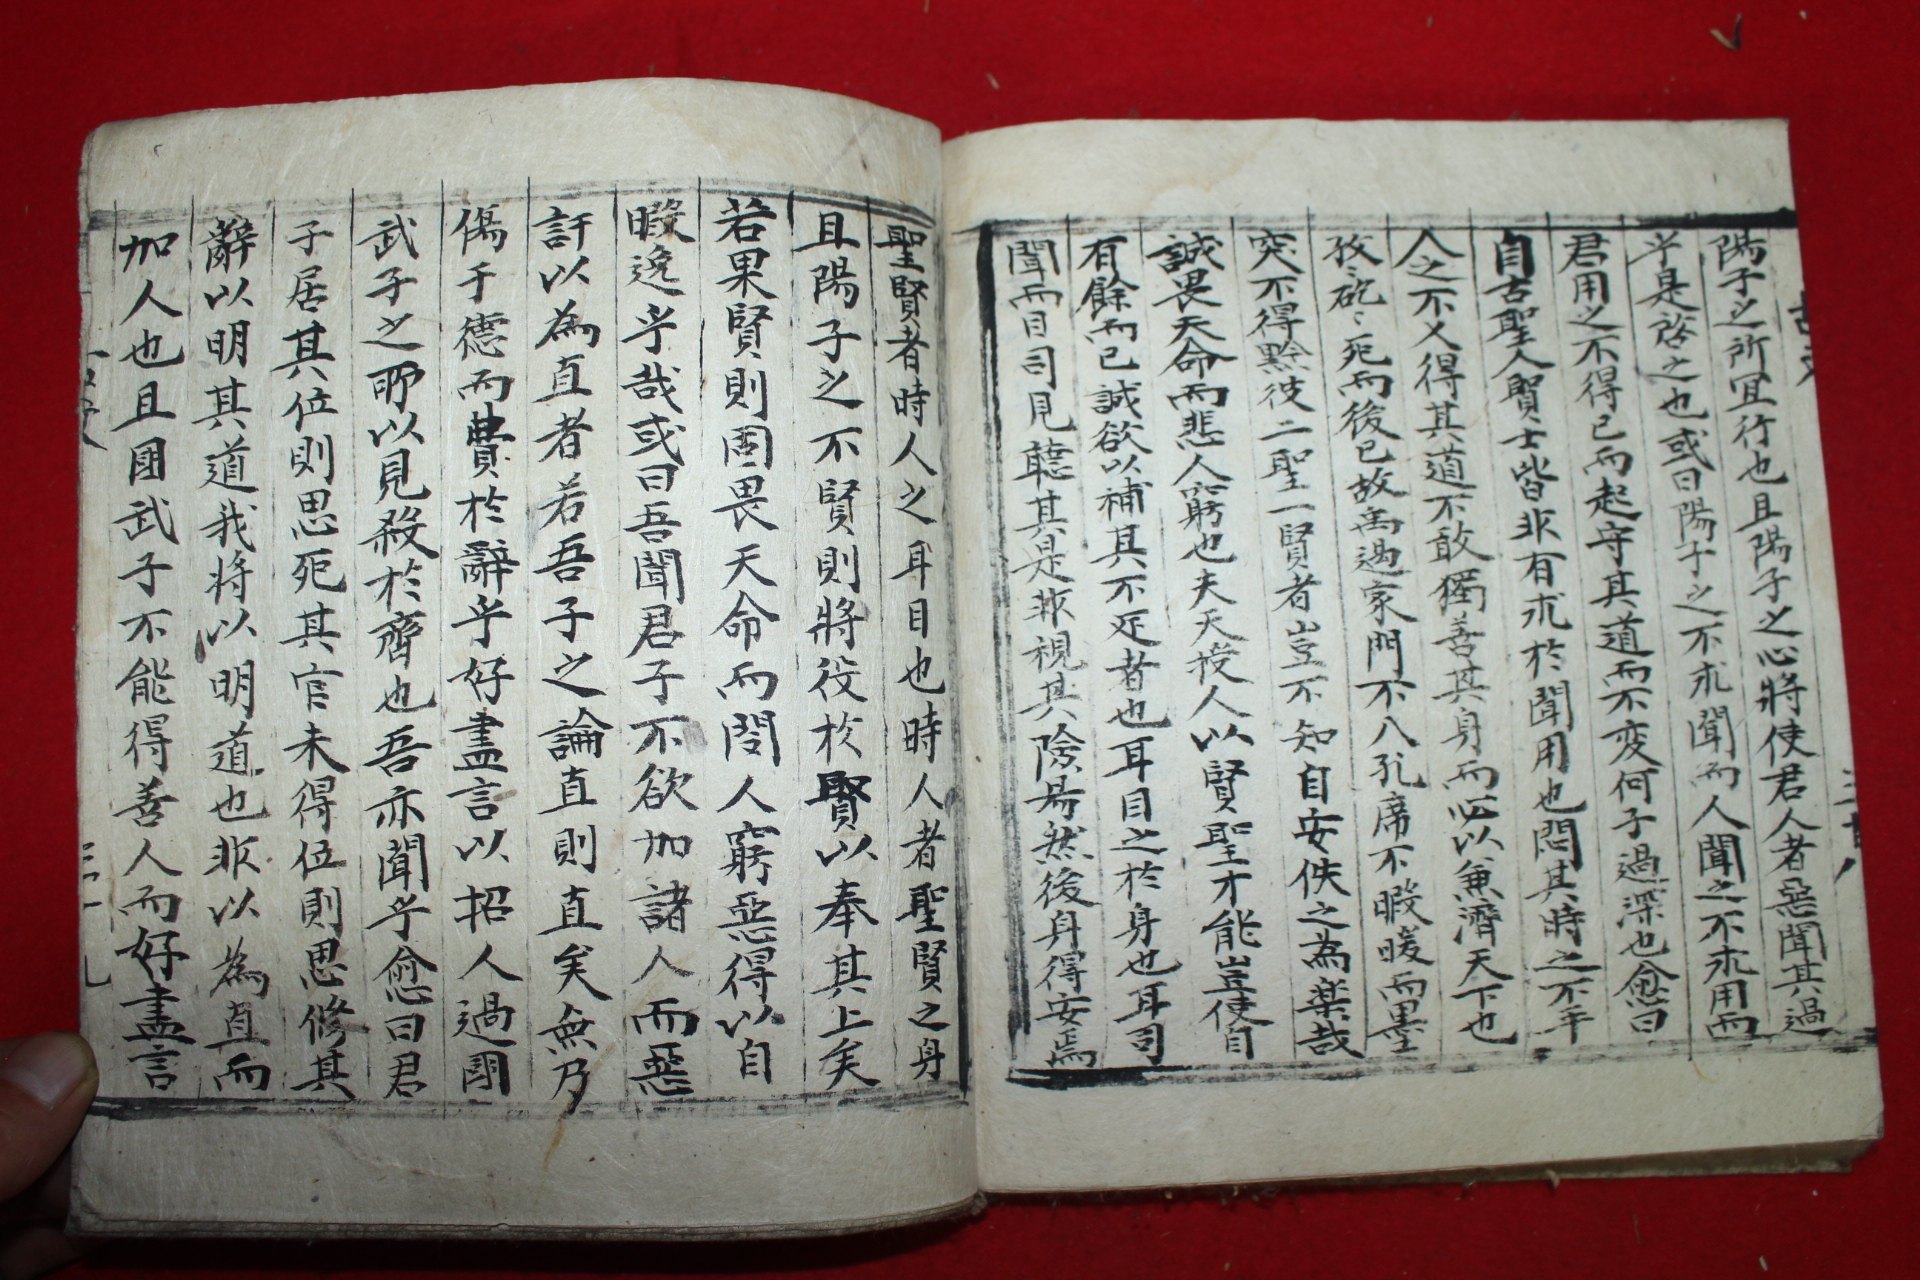 陽子之所宜行也且陽子之心將使君人者惡聞其過
乎是啓之也或曰陽子之不求聞而人聞之不求用而
君用之不得已而起守其道而不変何子過深也愈曰
自古聖人賢士皆非有求於聞用也閔其時之不平
人之不乂得其道不敢獨善其身而必以兼濟天下也
孜〻矻〻死而後已故禹過家門不入孔席不暇暖而墨
突不得黔彼二聖一賢者豈不知自安佚之為楽哉
誠畏天命而悲人窮也夫天授人以賢聖才能豈使自
有餘而已誠欲以補其不足者也耳目之於身也耳司
聞而目司見聽其是非視其險易然後身得安焉
聖賢者時人之耳目也時人者聖賢之身
且陽子之不賢則將役於賢以奉其上矣
若果賢則固畏天命而閔人窮惡得以自
暇逸乎哉或曰吾聞君子不欲加諸人而惡
訐以為直者若吾子之論直則直矣無乃
傷于德而費於辭乎好盡言以招人過国
武子之所以見殺於齊也吾亦聞乎愈曰君
子居其位則思死其官未得位則思修其
辭以明其道我將以明道也非以為直而
加人也且国武子不能得善人而好盡言